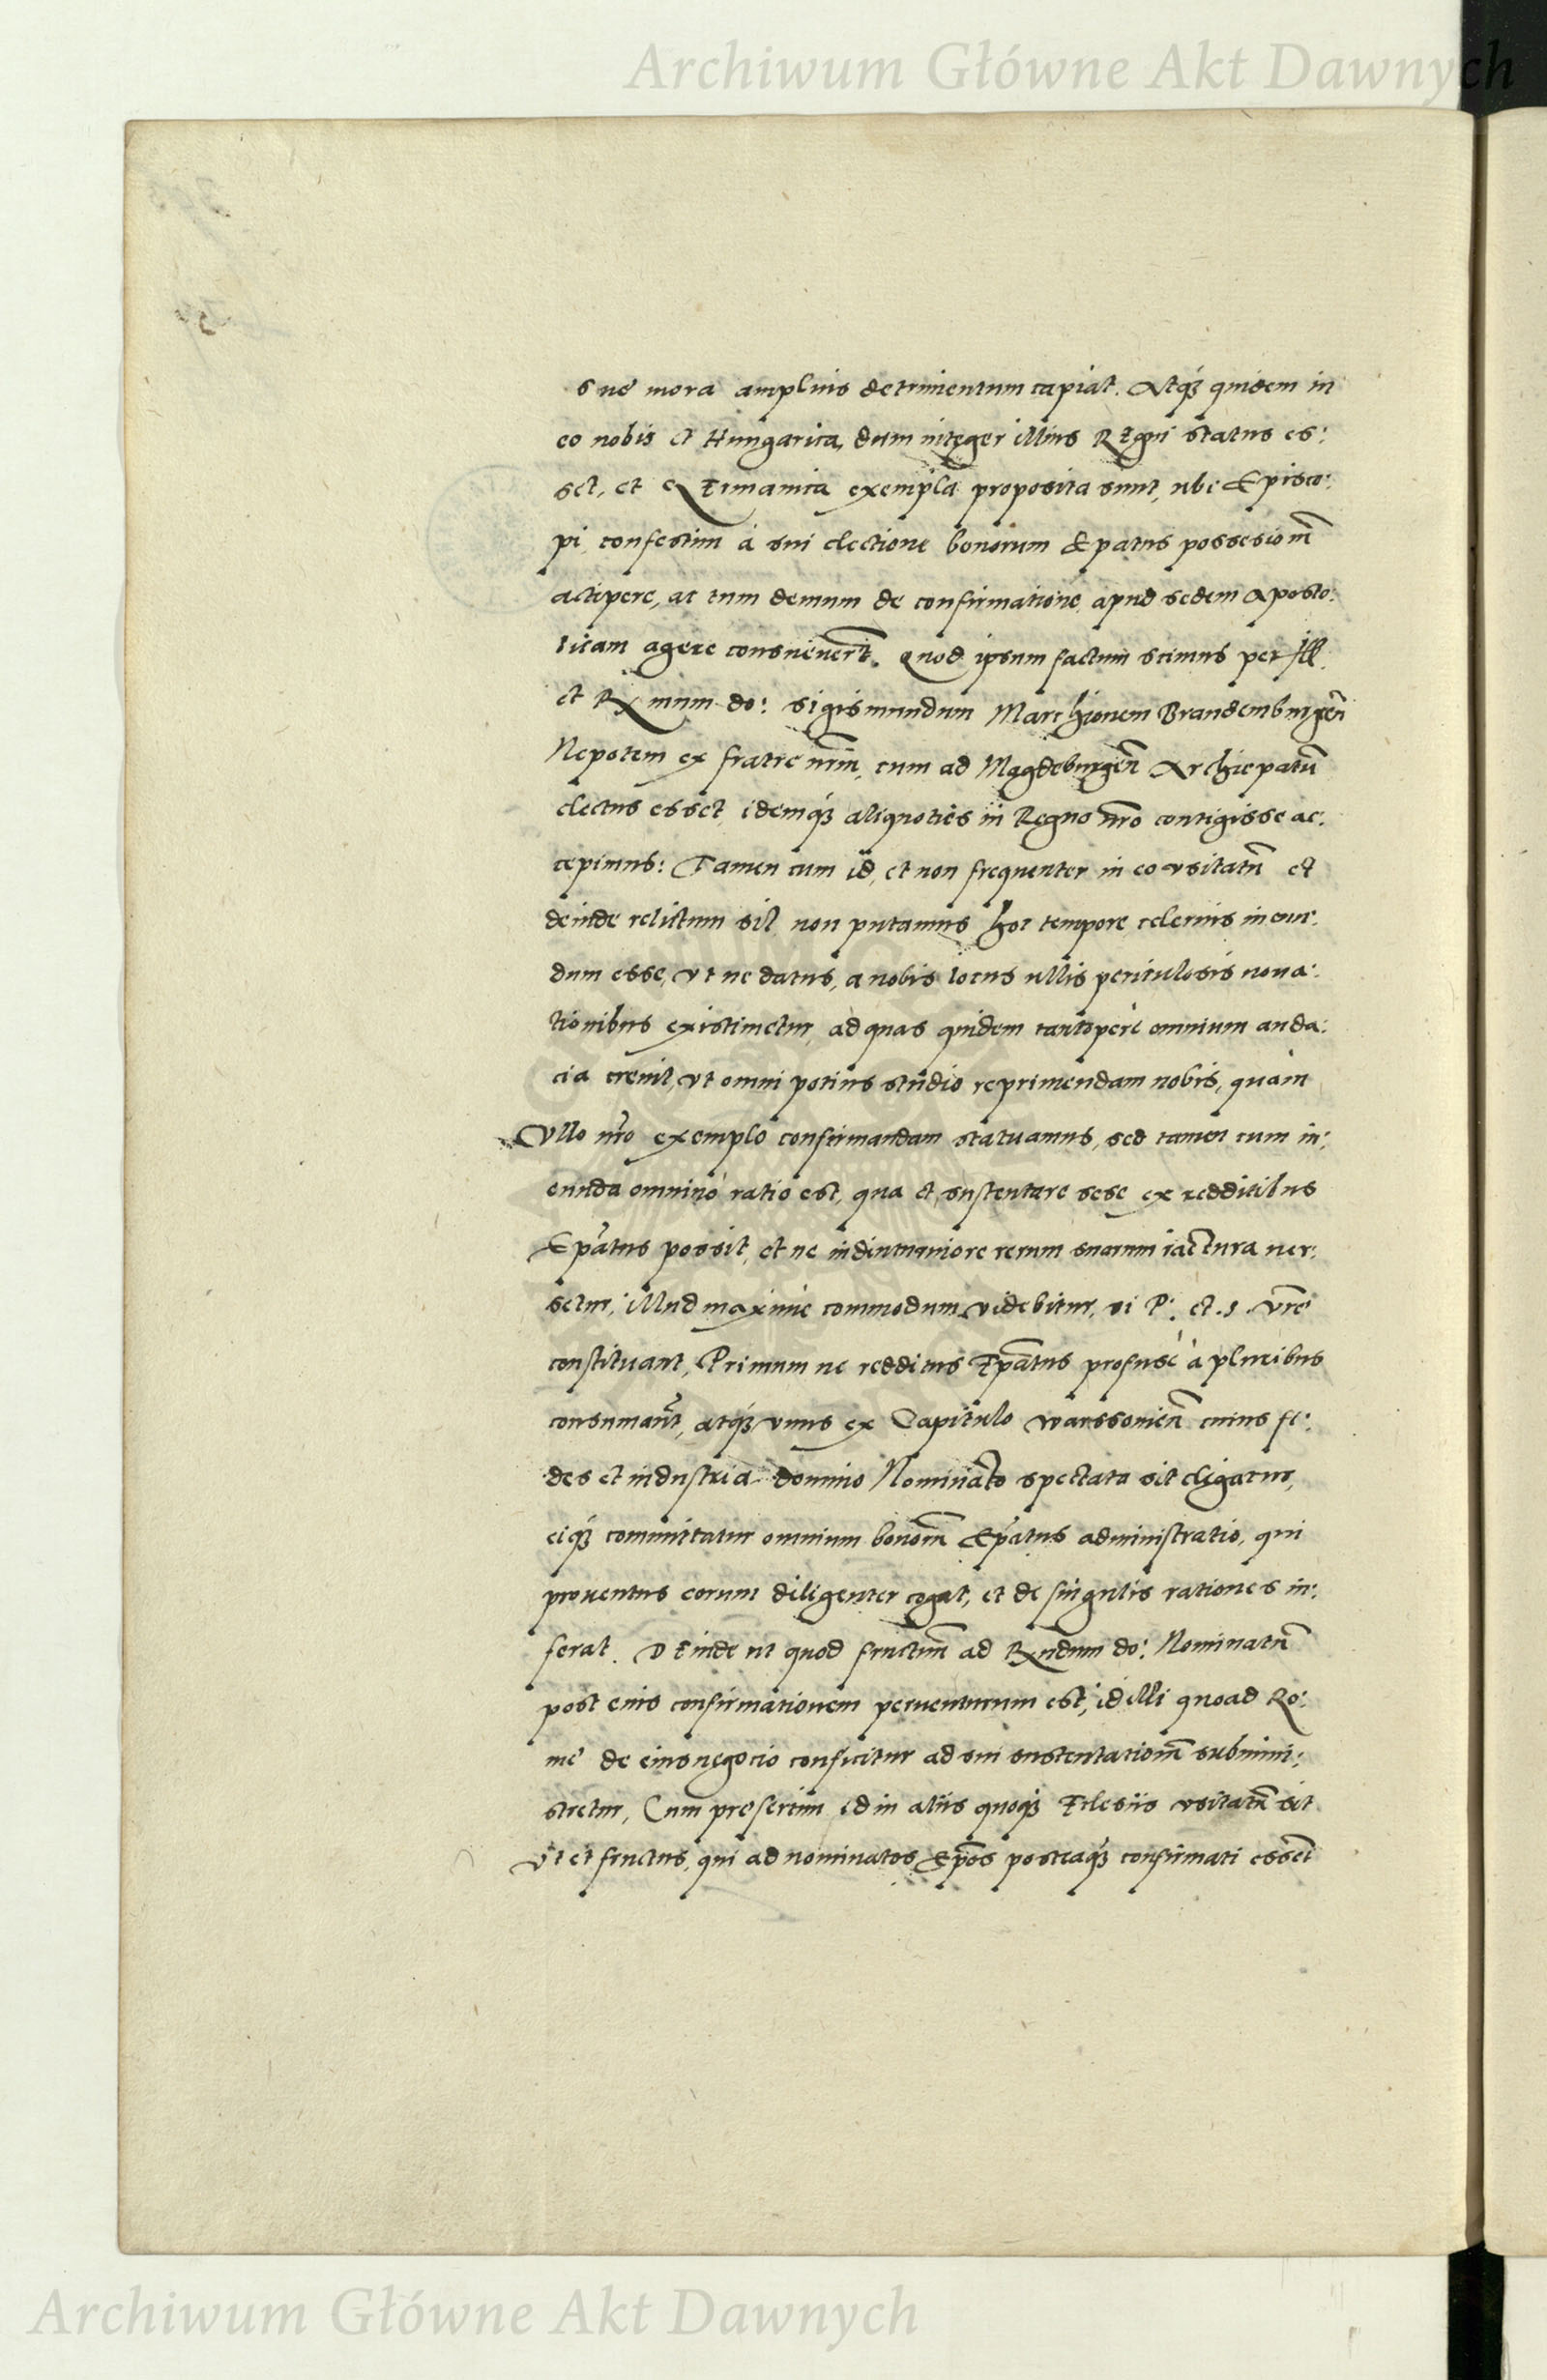 Archiwum Główne Akt Dawnych
s ne mora amplius detrimentum capiat. Atq3 quidem in
eo nobis et Hungarica, dum integer illius REgni status es:
set, et GErmanica exempla proposita sunt, ubi Episco:
pi confestim à sui electione bonorum Epatus possesionẽ
accipere, ac tum demum de confirmatione apud sedem Aposto:
licam agere consueverũt. Quod ipsum factum scimus per Ill.
et Rxmum do: Sigismundum Marchionem Brandemburgeñ
Nepotem ex fratre nrm̃, cum ad Magdeburgeñ Archiepatũ
electus esset, idemq3 aliquoties in Regno nr̃o contigisse ac:
cepimus: Tamen cum id, et non frequenter in eo usitatũ et
deinde relictum sit, non putamus hoc tempore celerius ineun:
dum esse, ut ne datus, a nobis locus ullis periculosis nova:
tionibus existimetur, ad quas quidem tantoperè omnium auda:
cia crevit, ut omni potius studio reprimendam nobis, quàm
Vllo nr̃o exemplo confirmandam statuamus, sed tamen cum in:
eunda omninò ratio est, qua et sustentare sese ex redditibus
Epãtus possit, et ne in diuturniore rerum suarum iactura ver:
setur, illud maxime commodum videbitur, si P: et .S. vrẽ
constituant, Primum ne redditus Epãtus profusè à pluribus
consumañt, atq3 vnus ex Capitulo Warssovieñ cuius fi:
des et industria domino Nominato spectata sit eligatur,
eiq3 committatur omnium bonorũ Epãtus administratio, qui
proventus eorum diligenter cogat, et de singulis rationes in:
ferat. DEinde ut quod fructuũ ad Rxndum do: Nominatũ
post eius confirmationem perventurum est, id illi quoad Ro:
me de eius negocio conficitur ad sui sustentationẽ submini:
stretur, Cum presertim id in aliis quoq3 Eclesiis usitatũ sit
Vt et fructus, qui ad nominatos Epõs posteaq3 confirmati essẽt
Archiwum Główne Akt Dawnych